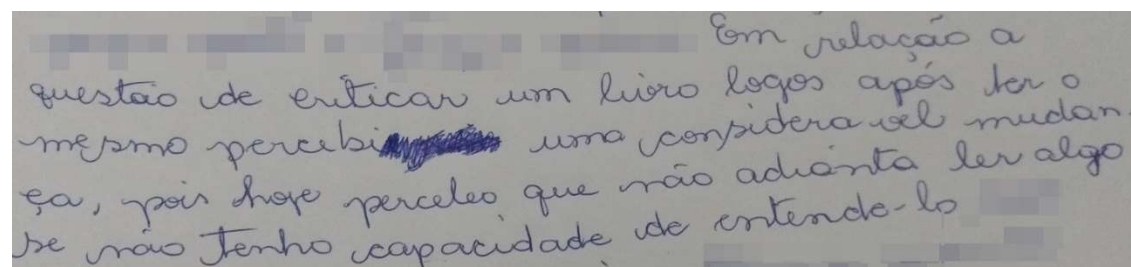 Em relação a
questão de criticar um livro logos após ter o
mesmo percebi uma considera vel mudan
ça, pois hoje percebo que não adianta ler algo
se não tenho capacidade de entende-lo